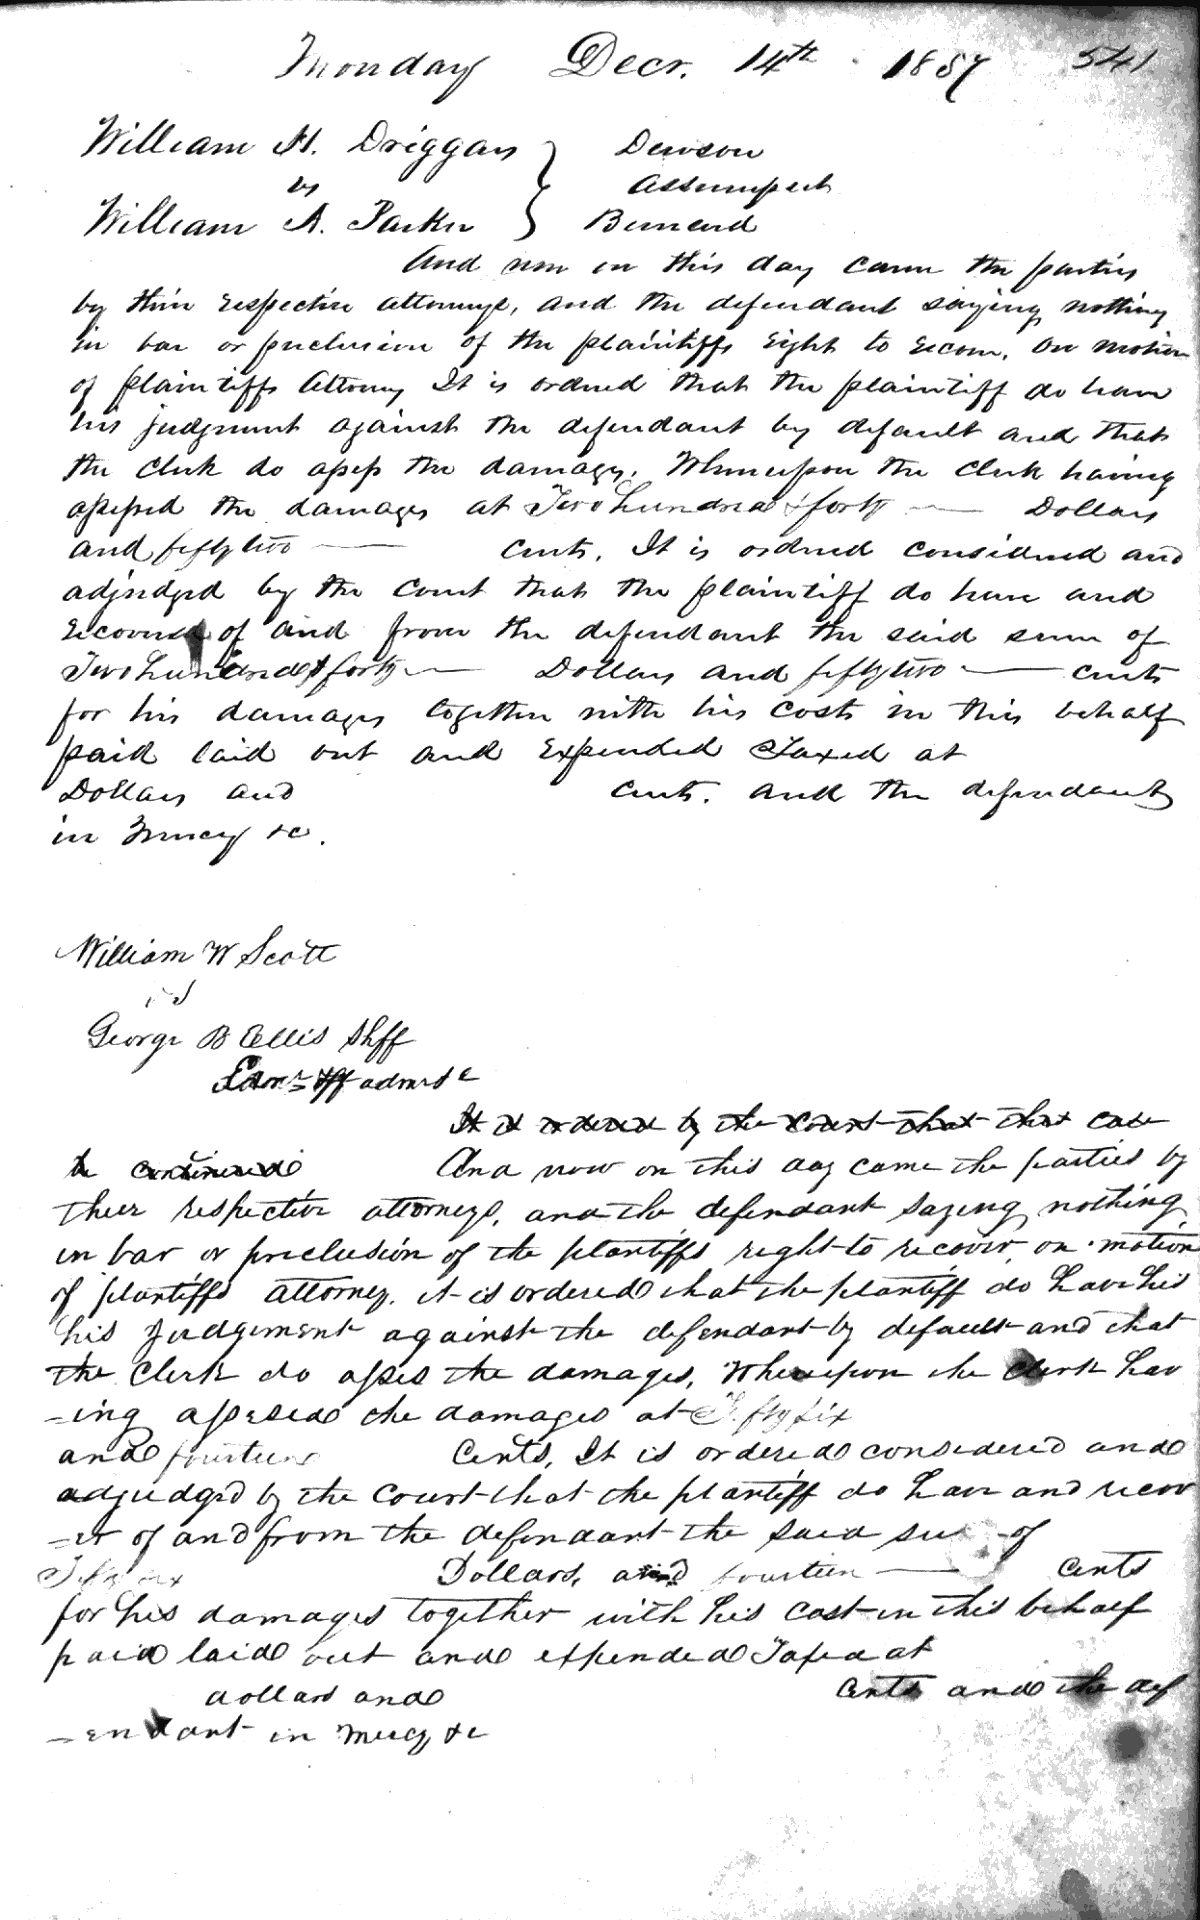 Monday Decr. 14th 1857 541
William H. Driggars } Dawson
vs } Assumpsit
William A. Parker } Bernard
And now on this day came the parties
by their respective attorneys, and the defendant saying nothing
in bar or preclusion of the plaintiffs right to recover. On motion
of plaintiffs Attorney It is ordered that the plaintiff do have
his judgment against the defendant by default and that
the clerk do assess the damages. Whereupon the clerk having
assessed the damages at Two hundred & forty — Dollars
and fifty two — cents. It is ordered considered and
adjudged by the court that the plaintiff do have and
recover of and from the defendant the said sum of
Two hundred & forty — Dollars and fifty two — cents
for his damages together with his costs in this behalf
paid laid out and expended Taxed at
Dollars and cents. And the defendant
in mercy &c.
William W Scott
vs
George B Ellis Shff
admr &c
It is ordered by the court that that case
be continued And now on this day came the parties by
their respective attorneys, and the defendant saying nothing
in bar or preclusion of the plantiffs right to recover on motion
of plantiffs attorney. it is ordered that the plantiff do have his
his judgement against the defendant by default and that
the Clerk do asses the damages, Whereupon the clerk hav
-ing assesed the damages at Fifty six
and fourteen Cents, It is ordered considered and
adjudged by the Court that the plantiff do have and recov
-er of and from the defendant the said sum of
Fifty six Dollars, and fourteen — Cents
for his damages together with his cost in this behalf
paid laid out and expended Taxed at
dollars and Cents and the def
-endant in mercy &c